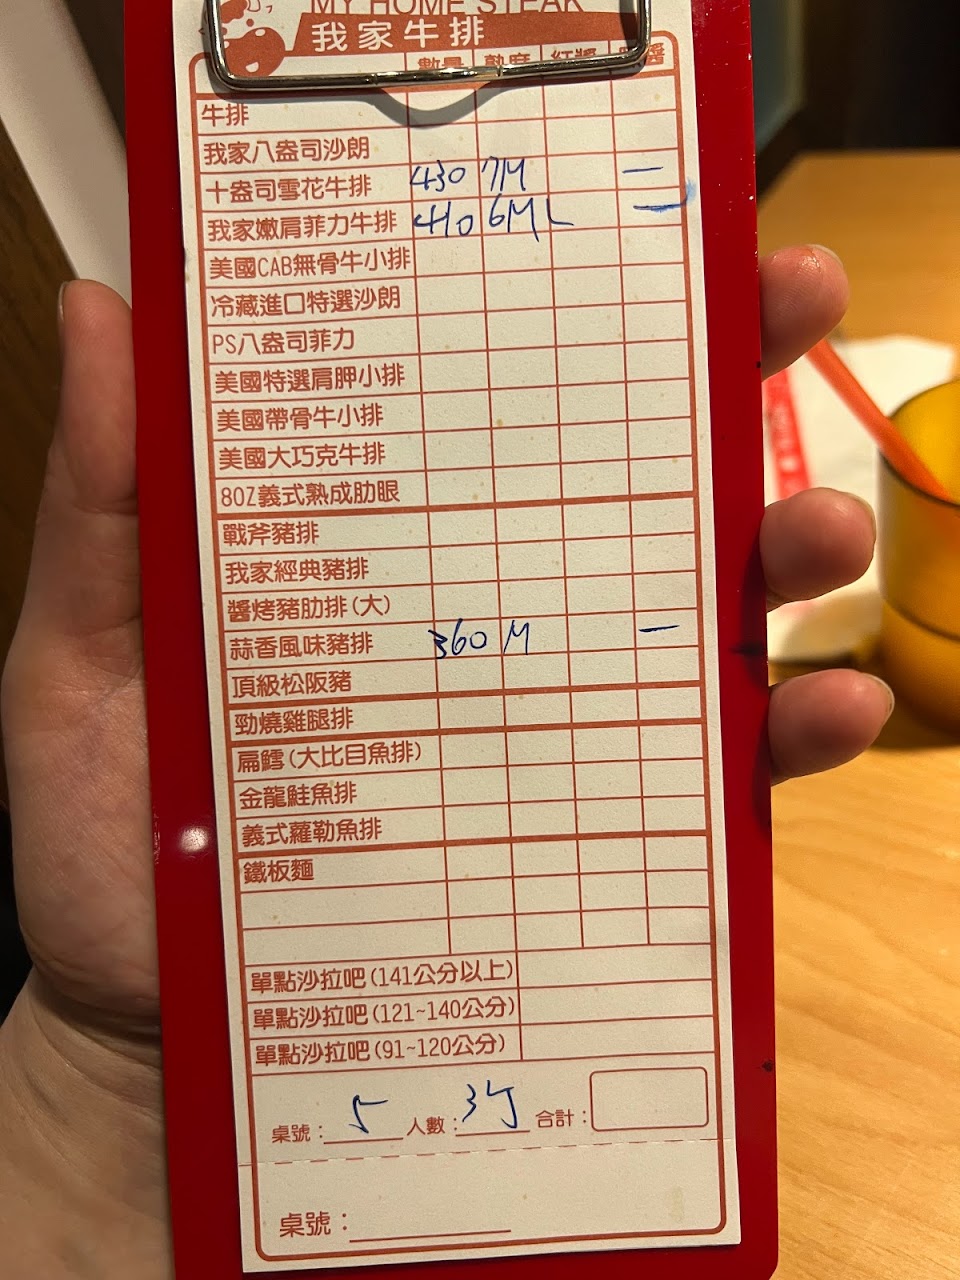 MY HOME STEAK
我家牛排
數量 熟度 紅醬 醬
牛排
我家八盎司沙朗
十盎司雪花牛排 430 7M 一
我家嫩肩菲力牛排 410 6M L 一
美國CAB無骨牛小排
冷藏進口特選沙朗
PS八盎司菲力
美國特選肩胛小排
美國帶骨牛小排
美國大巧克牛排
8OZ義式熟成肋眼
戰斧豬排
我家經典豬排
醬烤豬肋排(大)
蒜香風味豬排 360 M 一
頂級松阪豬
勁燒雞腿排
扁鱈(大比目魚排)
金龍鮭魚排
義式蘿勒魚排
鐵板麵
單點沙拉吧(141公分以上)
單點沙拉吧(121~140公分)
單點沙拉吧(91~120公分)
桌號：5 人數：3 合計：
桌號：